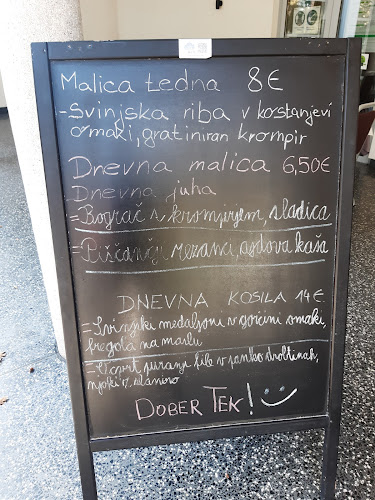 Malica tedna 8€
-Svinjska riba v kostanjevi
omaki, gratiniran krompir
Dnevna malica 6,50€
Dnevna juha
=Bograč s krompirjem, sladica
=Piščančji rezanci, ajdova kaša
DNEVNA KOSILA 14€
=Svinjski medaljoni v gorčični omaki,
fregola na maslu
=Ocvrt puranji file v panko drobtinah,
njoki z slanino
DOBER TEK!